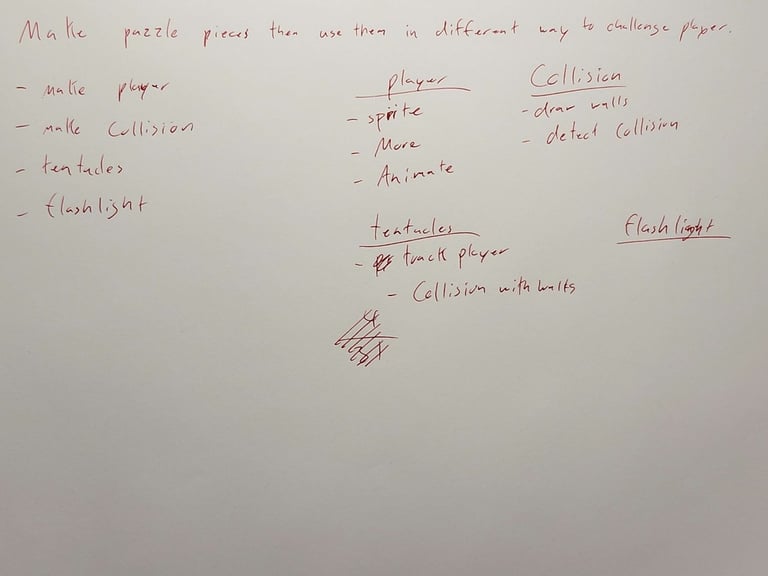 Make puzzle pieces then use them in different way to challenge player.
- make player
- make Collision
- tentacles
- flashlight
player
- sprite
- Move
- Animate
Collision
- draw walls
- detect Collision
tentacles
- track player
- Collision with walls
flashlight